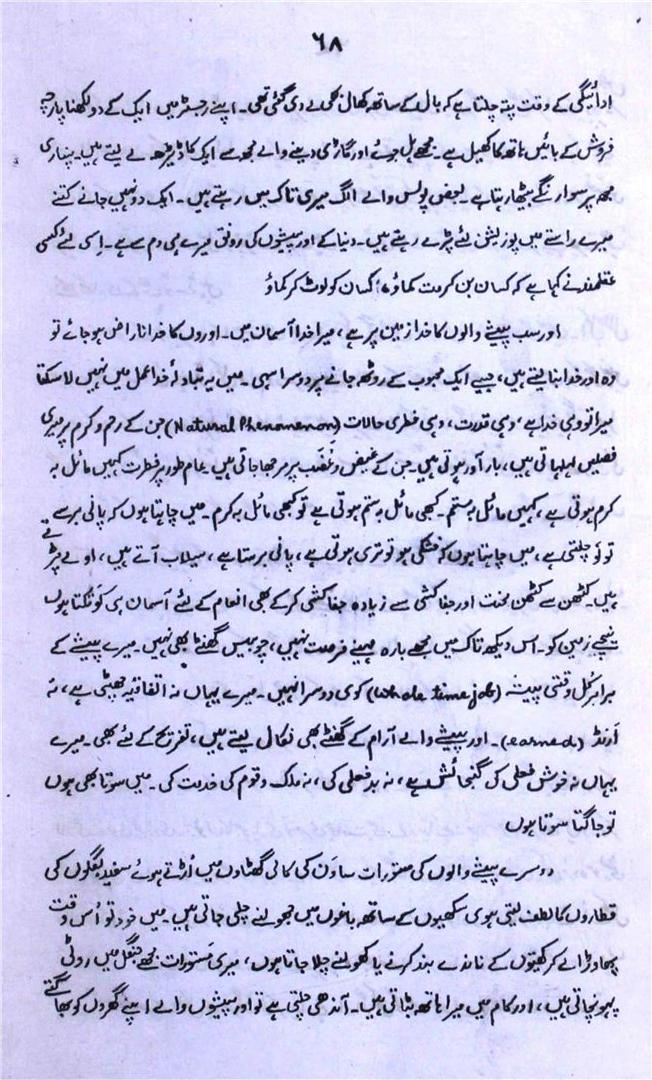 ۶۸
ادائیگی کے وقت پتہ چلتا ہے کہ بال کے ساتھ کھال بھی لے دی گئی تھی۔ اپنے رجسٹر میں ایک کے دو لکھنا پارچہ
فروش کے بائیں ہاتھ کا کھیل ہے۔ مجھے ہل جوئے اور گاڑی دینے والے مجھ سے ایک کا ڈیڑھ لے لیتے ہیں۔ پنساری
مجھ پر سوار نگے بیٹھا رہتا ہے۔ بعض پولس والے الگ میری تاک میں رہتے ہیں۔ ایک دو نہیں جانے کتنے
میرے راستے میں پوزیشن لئے پڑے رہتے ہیں۔ دنیا کے اور پیشوں کی رونق میرے ہی دم سے ہے۔ اسی لئے کسی
عقلمند نے کہا ہے کہ کسان بن کر مت کماؤ، کسان کو لوٹ کر کماؤ
اور سب پیشے والوں کا خدا زمین پر ہے، میرا خدا آسمان میں۔ اوروں کا خدا ناراض ہو جائے تو
وہ اور خدا بنا لیتے ہیں، جیسے ایک محبوب کے روٹھ جانے پر دوسرا سہی۔ میں یہ تبادلۂ خدا عمل میں نہیں لا سکتا
میرا تو وہی خدا ہے، وہی قدرت، وہی فطری حالات (Natural Phenomenon) جن کے رحم و کرم پر میری
فصلیں لہلہاتی ہیں، بار آور ہوتی ہیں جن کے غیض و غضب پر مرجھا جاتی ہیں عام طور پر فطرت کہیں مائل بہ
کرم ہوتی ہے، کہیں مائل بہ ستم۔ کبھی مائل بہ ستم ہوتی ہے تو کبھی مائل بہ کرم۔ میں چاہتا ہوں کہ پانی برسے
تو لو چلتی ہے، میں چاہتا ہوں کہ خشکی ہو تو تری ہوتی ہے، پانی برستا ہے، سیلاب آتے ہیں، اولے پڑتے
ہیں۔ کٹھن سے کٹھن محنت اور جفاکشی سے زیادہ جفاکشی کر کے بھی انعام کے لئے آسمان ہی کو تکتا ہوں
نیچے زمین کو۔ اس دیکھ تاک میں مجھے بارہ مہینے فرصت نہیں، چوبیس گھنٹا بھی نہیں۔ میرے پیشے کے
برابر کل وقتی پیشہ (Whole time job) کوی دوسرا نہیں۔ میرے یہاں نہ اتفاقیہ چھٹی ہے، نہ
اَرنڈ (earned)۔ اور پیشے والے آرام کے گھنٹے بھی نکال لیتے ہیں، تفریح کے لئے بھی۔ میرے
یہاں نہ خوش فعلی کی گنجائش ہے، نہ بد فعلی کی، نہ ملک و قوم کی خدمت کی۔ میں سوتا بھی ہوں
تو جاگتا سوتا ہوں
دوسرے پیشے والوں کی مستورات ساون کی کالی گھٹاوں میں اُڑتے ہوئے سفید بگلوں کی
قطاروں کا لطف لیتی ہوی سکھیوں کے ساتھ باغوں میں جھولنے چلی جاتی ہیں میں خود تو اُس وقت
پھاوڑا لے کر کھیتوں کے ناندے بند کرنے یا کھولنے چلا جاتا ہوں، میری مستورات مجھے جنگل میں روٹی
پہونچاتی ہیں، اور کام میں میرا ہاتھ بٹاتی ہیں۔ آندھی چلتی ہے تو اور پیشوں والے اپنے گھروں کو بھاگتے